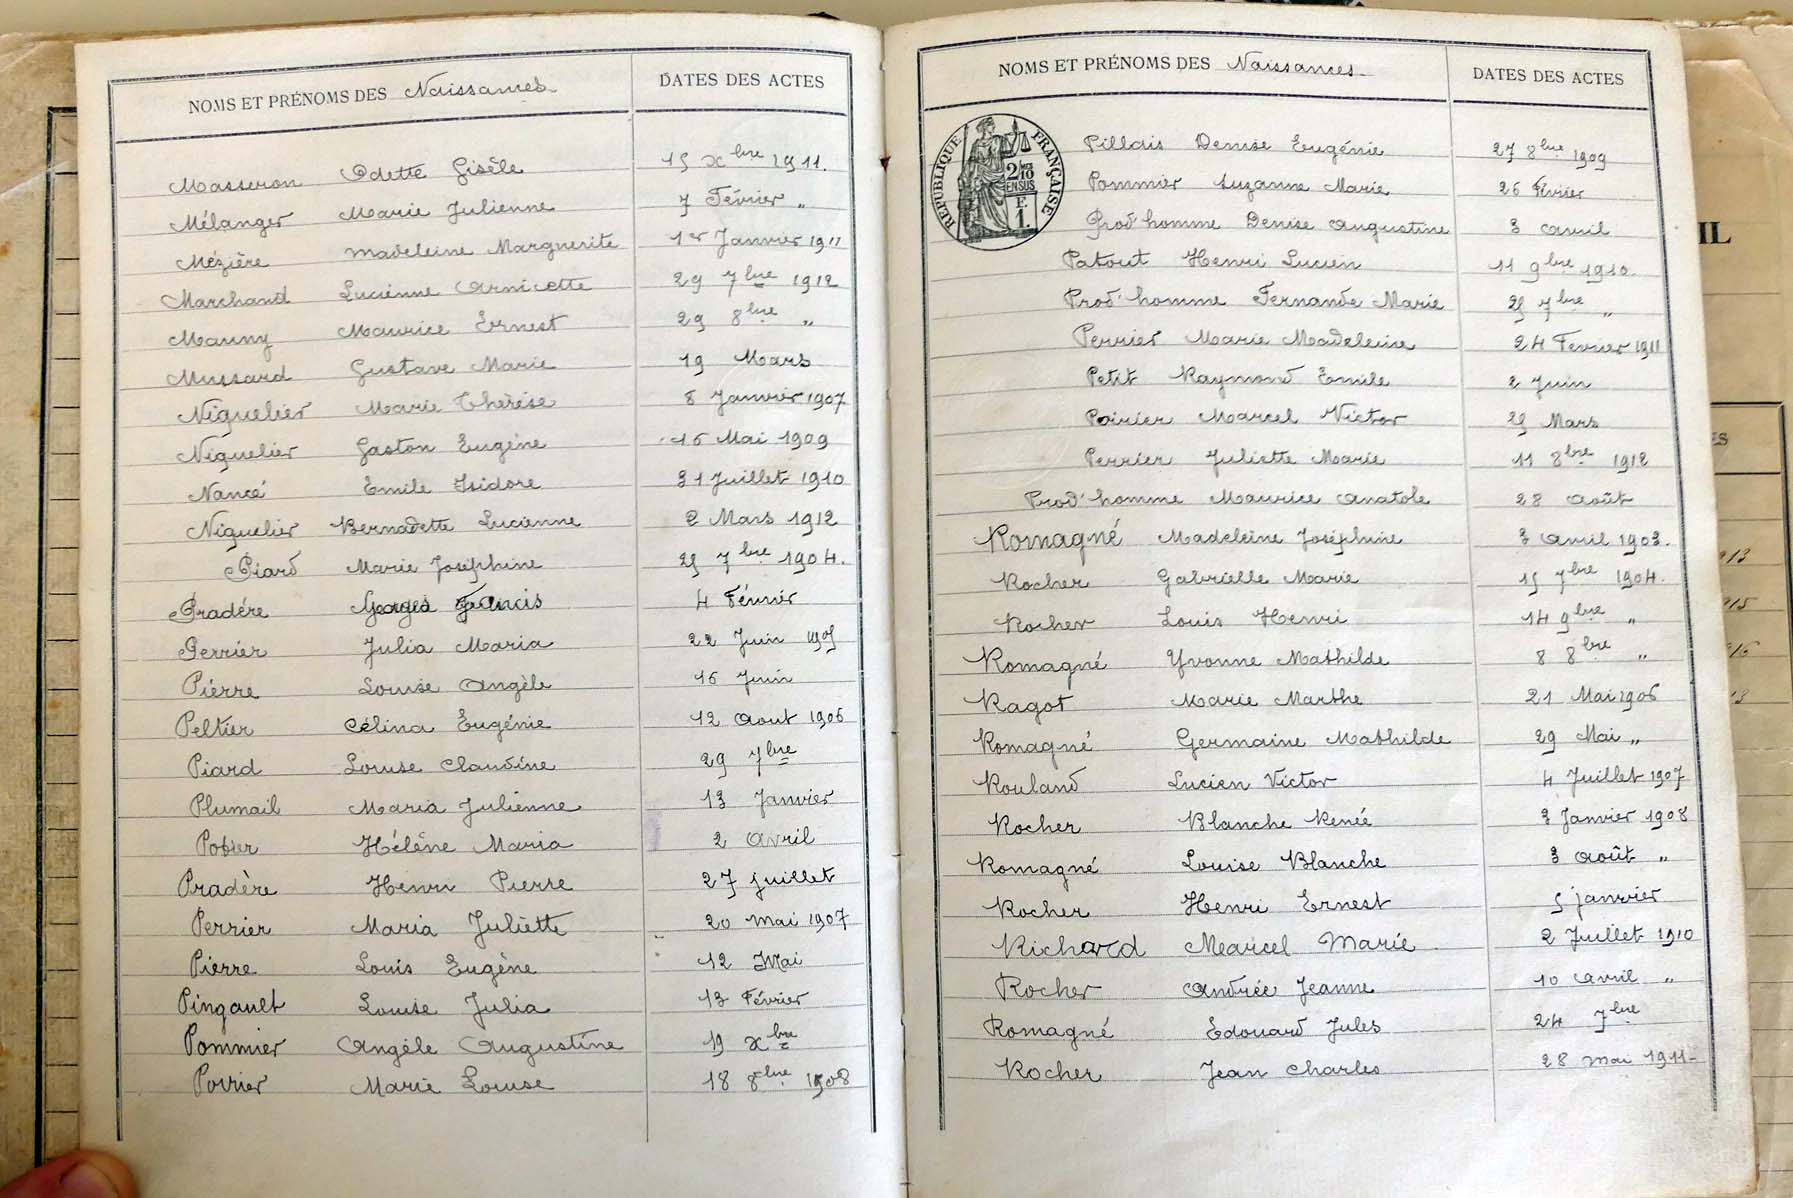 NOMS ET PRÉNOMS DES Naissances DATES DES ACTES
Masseron Odette Gisèle 15 Xbre 1911.
Mélanger Marie Julienne 7 Février "
Mézière Madeleine Marguerite 1er Janvier 1911
Marchand Lucienne Arnicette 29 7bre 1912
Mauny Maurice Ernest 29 8bre "
Mussard Gustave Marie 19 Mars
Niguelier Marie Thérèse 8 Janvier 1907
Niguelier Gaston Eugène 16 Mai 1909
Nancé Emile Isidore 31 Juillet 1910
Niguelier Bernadette Lucienne 2 Mars 1912
Piard Marie Joséphine 25 7bre 1904.
Pradère Georges Francis 4 Février
Perrier Julia Maria 22 Juin 1905
Pierre Louise Angèle 16 Juin
Peltier Célina Eugénie 12 Aout 1906
Piard Louise Claudine 29 7bre
Plumail Maria Julienne 13 Janvier
Potier Hélène Maria 2 Avril
Pradère Henri Pierre 27 Juillet
Perrier Maria Juliette 20 Mai 1907
Pierre Louis Eugène 12 Mai
Pingault Louise Julia 13 Février
Pommier Angèle Augustine 19 Xbre
Poirier Marie Louise 18 8bre 1908
NOMS ET PRÉNOMS DES Naissances DATES DES ACTES
RÉPUBLIQUE FRANÇAISE
2/10
EN SUS
F.
1.
Pillais Denise Eugénie 27 8bre 1909
Pommier Suzanne Marie 26 Février
Prod'homme Denise Augustine 3 Avril
Patout Henri Lucien 11 9bre 1910.
Prod'homme Fernande Marie 25 7bre "
Perrier Marie Madeleine 24 Fevrier 1911
Petit Raymond Emile 2 Juin
Poirier Marcel Victor 25 Mars
Perrier Juliette Marie 11 8bre 1912
Prod'homme Maurice Anatole 28 Août
Romagné Madeleine Joséphine 3 Avril 1903.
Rocher Gabrielle Marie 15 7bre 1904.
Rocher Louis Henri 14 9bre "
Romagné Yvonne Mathilde 8 8bre "
Ragot Marie Marthe 21 Mai 1906
Romagné Germaine Mathilde 29 Mai "
Rouland Lucien Victor 4 Juillet 1907
Rocher Blanche Renée 3 Janvier 1908
Romagné Louise Blanche 3 Août "
Rocher Henri Ernest 5 janvier
Richard Marcel Marie 2 Juillet 1910
Rocher Andrée Jeanne 10 Avril "
Romagné Edouard Jules 24 7bre
Rocher Jean Charles 28 mai 1911
IL